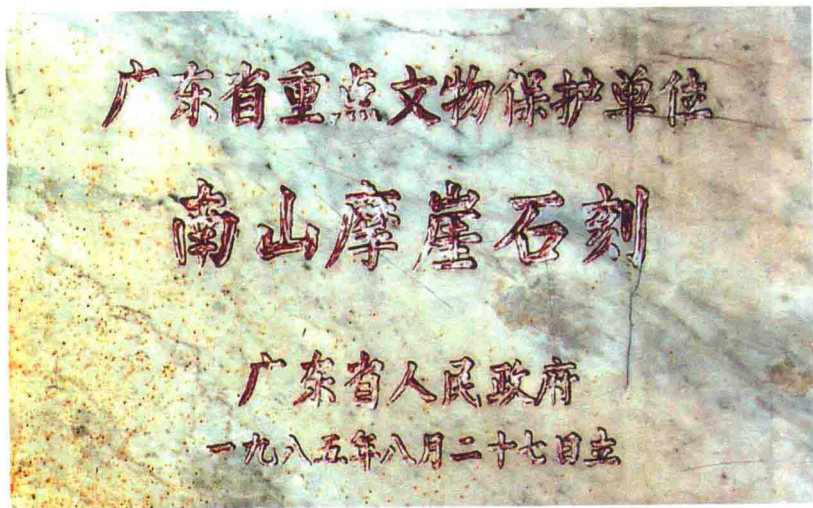 广东省重点文物保护单位
南山摩崖石刻
广东省人民政府
一九八五年八月二十七日立